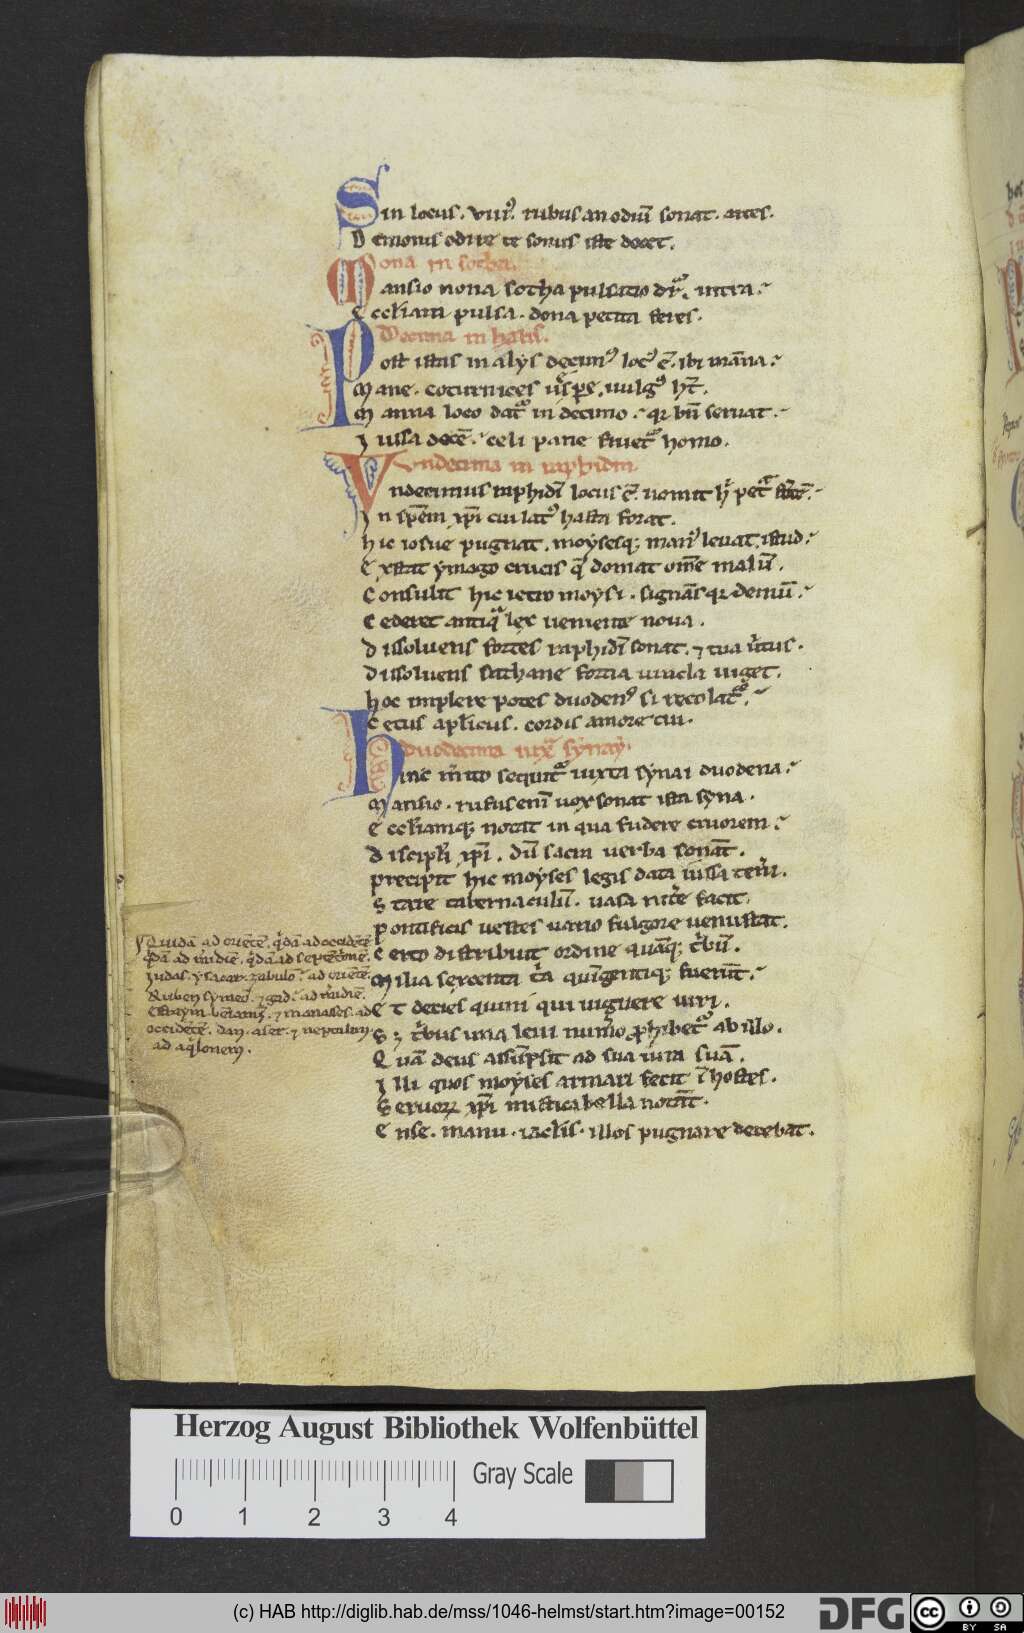 Sin locus. viii9. rubus an odiū sonat. artes.
Demonis odire te sonus iste docet.
Nona in sotha.
Mansio nona sotha pulsatio dr̄. intra.
Eccl'iam pulsa. dona petita feres.
Decima in halis.
Post istas in alys decim9 loc9 ē. ibi māna.
Mane. coturnices
Manna loco dat' in decimo. qr bn̄ seruat.
Iussa decē. celi pane fruet' homo.
Undecima in raphidin
Undecimus raphidī locus ē. uomit h' petra fōtē.
In spem xp̄i cui lat9 hasta forat.
hic iosue pugnat. moysesq; man9 leuat, istud.
Exstat ymago crucis q̄ domat om̄e malū.
Consulit hic ietro moysi. signās qr demū.
Cederet antiqua lex ueniente noua.
Dissoluens fortes raphidī sonat. ⁊ tua v'tus.
Dissoluens sathane fortia uincla uiget.
hoc implere potes duoden9 si recolat'.
Cetus apl'icus. cordis amore tui.
Duodecima iuxa synay.
Hinc m'ito sequit' iuxta synai duodena.
Mansio. rufus enī uox sonat ista syna.
Eccl'iamq; notat in qua fudere cruorem.
Discipl'i xp̄i. dū sacra uerba sonāt.
Precipit hic moyses legis data iussa teneri.
Stare tabernaculū. uasa rite facit.
Pontificis uestes uario fulgore uenustat.
Certo distribuit ordine quāq; t'bū.
Milia sexcenta t'a quīgentiq; fuerūt.
Et decies quini qui uiguere uiri.
S; t'bus una leui num'o phibet' ab illo.
Quā deus assūpsit ad sua iura suā.
Illi quos moyses armari fecit ī hostes.
Seruorꝝ xp̄i mistica bella notāt.
Ense. manu. iacl'is. illos pugnare decebat.
Quidā ad oriētē. q'dā ad occidētē
q'dā ad m'idiē. q'dā ad septētrionē.
Iudas. ysacar. zabulo. ad oriētē.
Ruben symeō. ⁊ gad. ad m'idiē.
Effraym beiamī. ⁊ manasses. ad
occidētē. dan. aser. ⁊ neptalim.
ad aq'lonem.
Herzog August Bibliothek Wolfenbüttel
Gray Scale
0 1 2 3 4
(c) HAB http://diglib.hab.de/mss/1046-helmst/start.htm?image=00152
DFG
cc BY SA